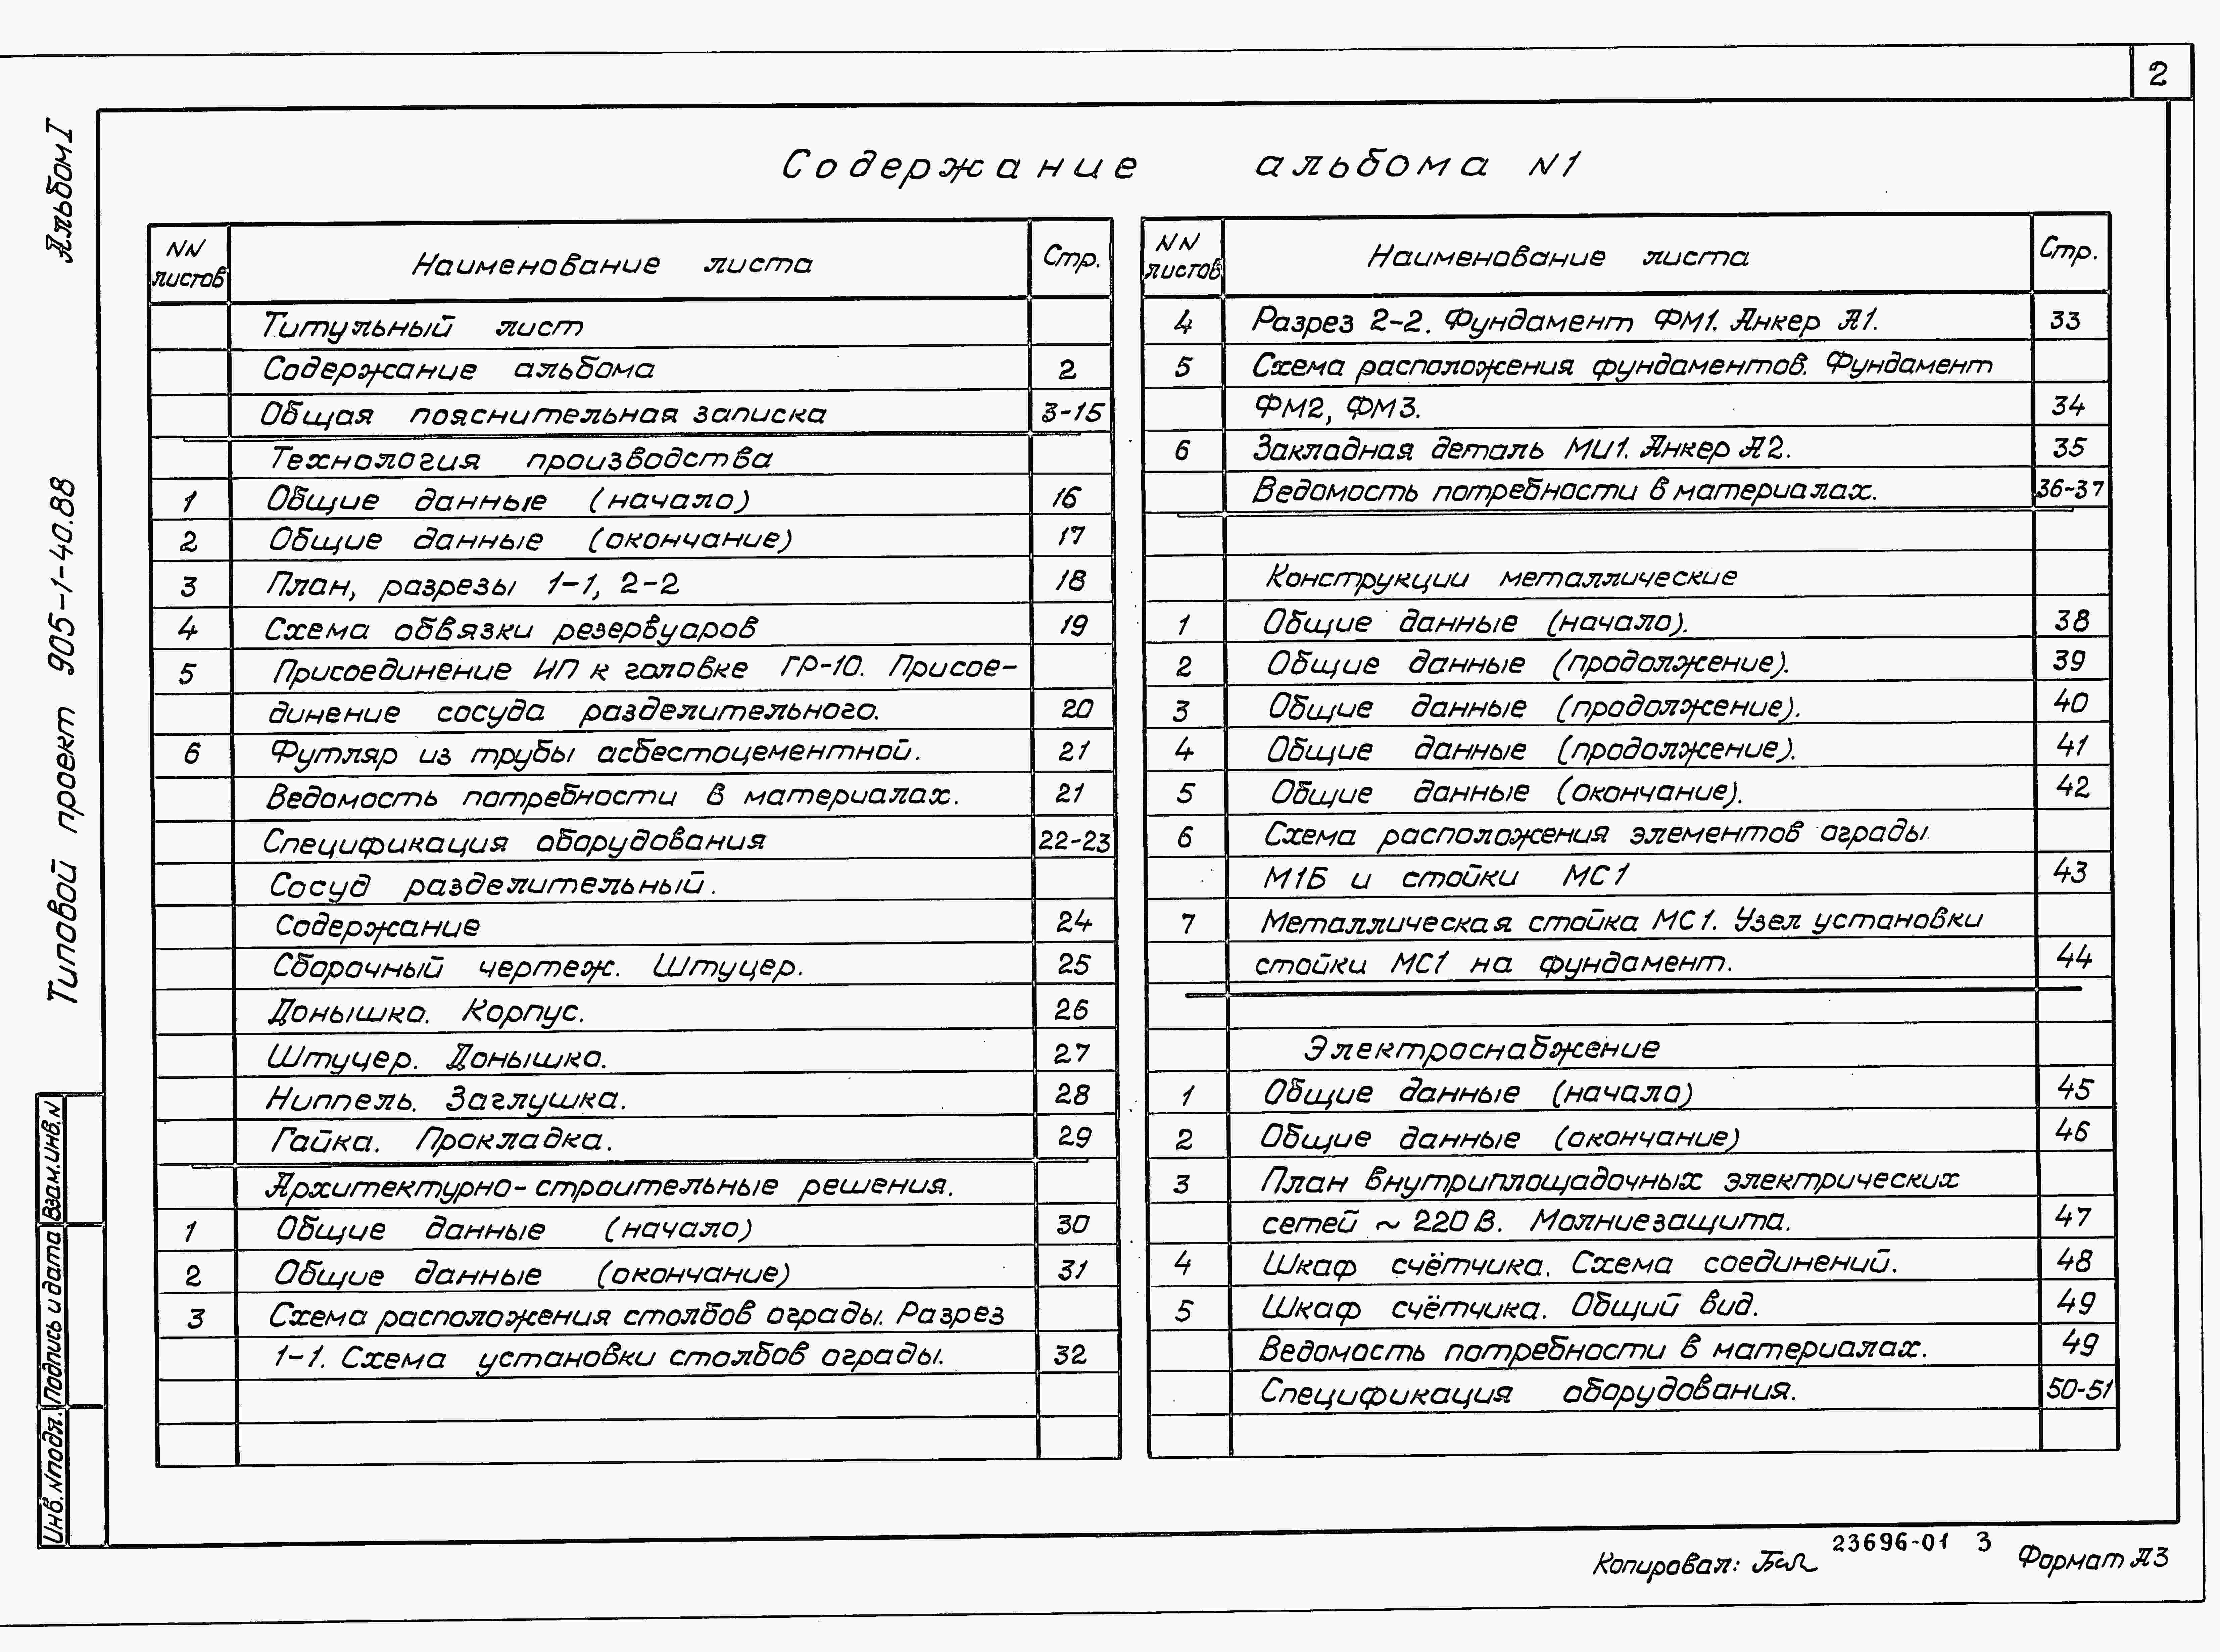 2
Альбом I
Типовой проект 905-1-40.88
Содержание альбома N1
NN листов Наименование листа Стр.
Титульный лист
Содержание альбома 2
Общая пояснительная записка 3-15
Технология производства
1 Общие данные (начало) 16
2 Общие данные (окончание) 17
3 План, разрезы 1-1, 2-2 18
4 Схема обвязки резервуаров 19
5 Присоединение ИП к головке ГР-10. Присое-
динение сосуда разделительного. 20
6 Футляр из трубы асбестоцементной. 21
Ведомость потребности в материалах. 21
Спецификация оборудования 22-23
Сосуд разделительный.
Содержание 24
Сборочный чертеж. Штуцер. 25
Донышко. Корпус. 26
Штуцер. Донышко. 27
Ниппель. Заглушка. 28
Гайка. Прокладка. 29
Архитектурно-строительные решения.
1 Общие данные (начало) 30
2 Общие данные (окончание) 31
3 Схема расположения столбов ограды. Разрез
1-1. Схема установки столбов ограды. 32
NN листов Наименование листа Стр.
4 Разрез 2-2. Фундамент ФМ1. Анкер А1. 33
5 Схема расположения фундаментов. Фундамент
ФМ2, ФМ3. 34
6 Закладная деталь МИ1. Анкер А2. 35
Ведомость потребности в материалах. 36-37
Конструкции металлические
1 Общие данные (начало). 38
2 Общие данные (продолжение). 39
3 Общие данные (продолжение). 40
4 Общие данные (продолжение). 41
5 Общие данные (окончание). 42
6 Схема расположения элементов ограды
М1Б и стойки МС1 43
7 Металлическая стойка МС1. Узел установки
стойки МС1 на фундамент. 44
Электроснабжение
1 Общие данные (начало) 45
2 Общие данные (окончание) 46
3 План внутриплощадочных электрических
сетей ~ 220 В. Молниезащита. 47
4 Шкаф счётчика. Схема соединений. 48
5 Шкаф счётчика. Общий вид. 49
Ведомость потребности в материалах. 49
Спецификация оборудования. 50-51
Взам.инв.N
Подпись и дата
Инв.Nподл.
Копировал: 23696-01 3 Формат А3